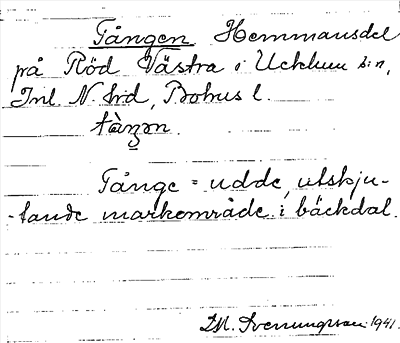 Tången Hemmansdel
på Röd Västra i Ucklum s:n,
Inl. N. hd, Bohus l.
tàŋən.
Tånge = udde, utskju-
-tande markområde i bäckdal.
Sveningsson 1941.